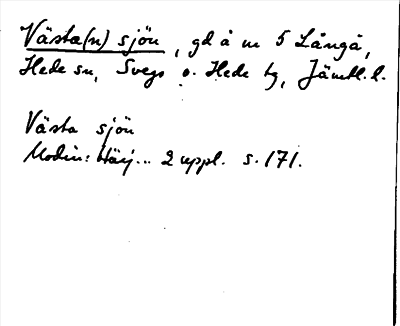 Västa(n) sjön, gd å nr 5 Långå,
Hede sn, Svegs o. Hede tg, Jämtl. l.
Västa sjön
Modin: Härj... 2 uppl. s. 171.